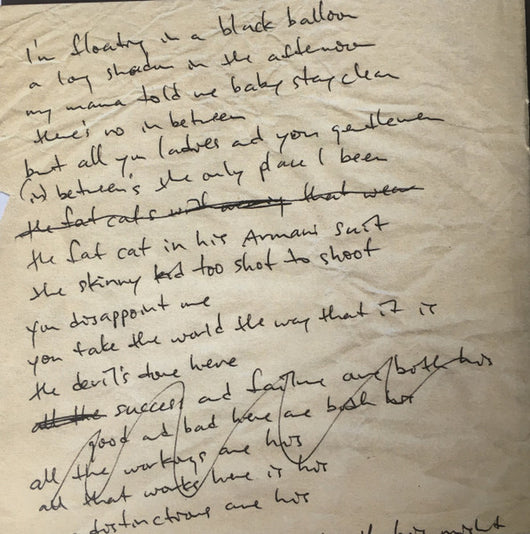 I'm floating in a black balloon
a long shadow in the afternoon
my mama told me baby stay clean
there's no in between
but all you ladies and you gentlemen
(in) between's the only place I been
the fat cats with that wear
the fat cat in his Armani suit
the skinny kid too shot to shoot
you disappoint me
you take the world the way that it is
the devil's done here
all the success and failure are both his
good and bad here are both his
all the workings are his
all that works here is his
distinctions are his
his might